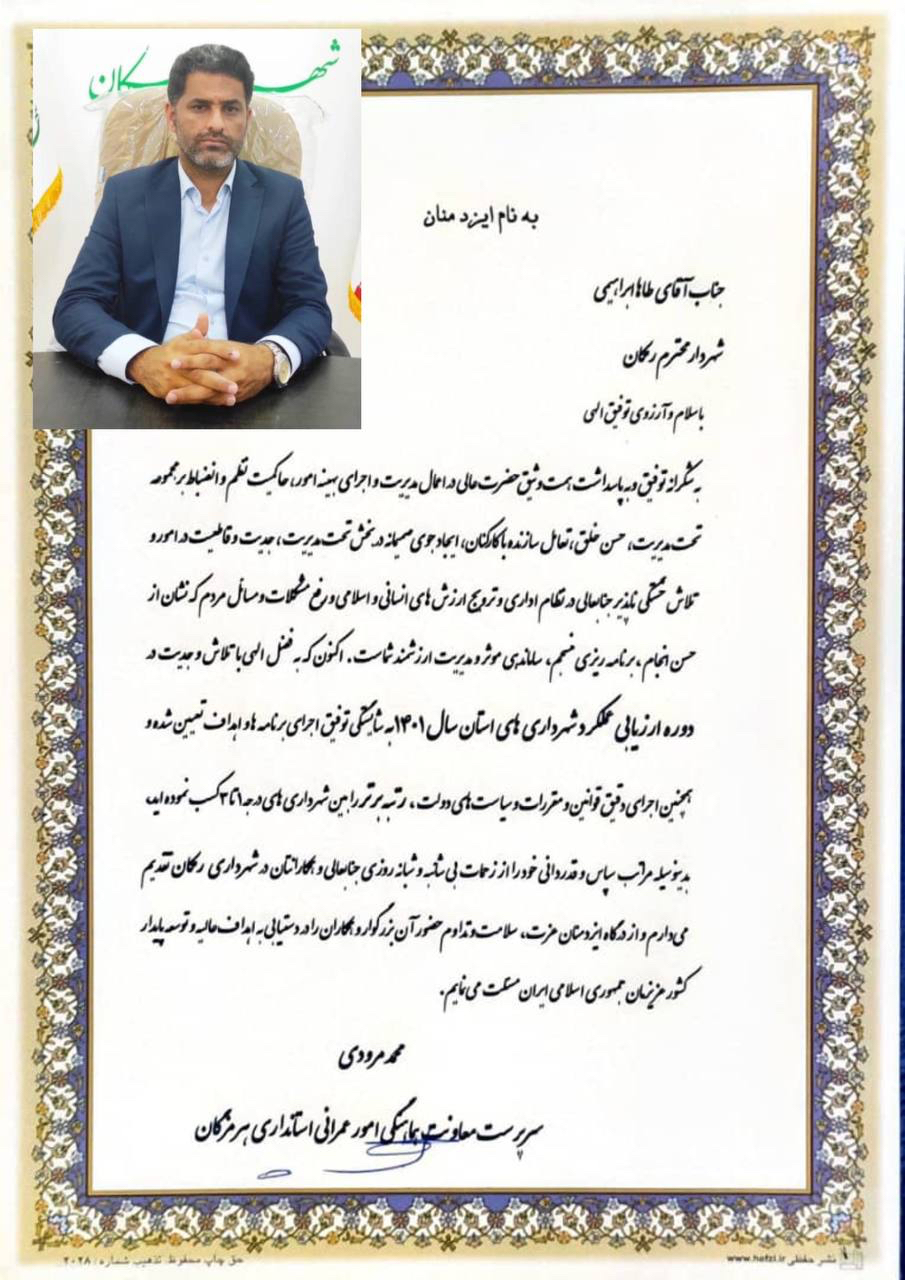 شهر
به نام ایزد منان
جناب آقای طاها ابراهیمی
شهردار محترم رمکان
با سلام و آرزوی توفیق الهی
به شکرانه توفیق و به پاسداشت همت وثیق حضرت عالی در اعمال مدیریت و اجرای بهینه امور، حاکمیت نظم و انضباط بر مجموعه
تحت مدیریت، حسن خلق، تعامل سازنده با کارکنان، ایجاد جوی صمیمانه در بخش تحت مدیریت، جدیت و قاطعیت در امور و
تلاش خستگی ناپذیر جنابعالی در نظام اداری و ترویج ارزش های انسانی و اسلامی و رفع مشکلات و مسائل مردم که نشان از
حسن انجام، برنامه ریزی منسجم، ساماندهی موثر و مدیریت ارزشمند شماست. اکنون که به فضل الهی با تلاش و جدیت در
دوره ارزیابی عملکرد شهرداری های استان سال ۱۴۰۱ به شایستگی توفیق اجرای برنامه ها و اهداف تعیین شده و
همچنین اجرای دقیق قوانین و مقررات و سیاست های دولت، رتبه برتر را بین شهرداری های درجه ۱ تا ۳ کسب نموده اید،
بدینوسیله مراتب سپاس و قدردانی خود را از زحمات بی شائبه و شبانه روزی جنابعالی و همکارانتان در شهرداری رمکان تقدیم
می دارم و از درگاه ایزد منان عزت، سلامت و تداوم حضور آن بزرگوار و همکاران را در دستیابی به اهداف عالیه و توسعه پایدار
کشور عزیزمان جمهوری اسلامی ایران مسئلت می نمایم.
محمد مرودی
سرپرست معاونت هماهنگی امور عمرانی استانداری هرمزگان
نشر حفظی www.hafzi.ir
حق چاپ محفوظ. تذهیب شماره: ۲۰۲۸